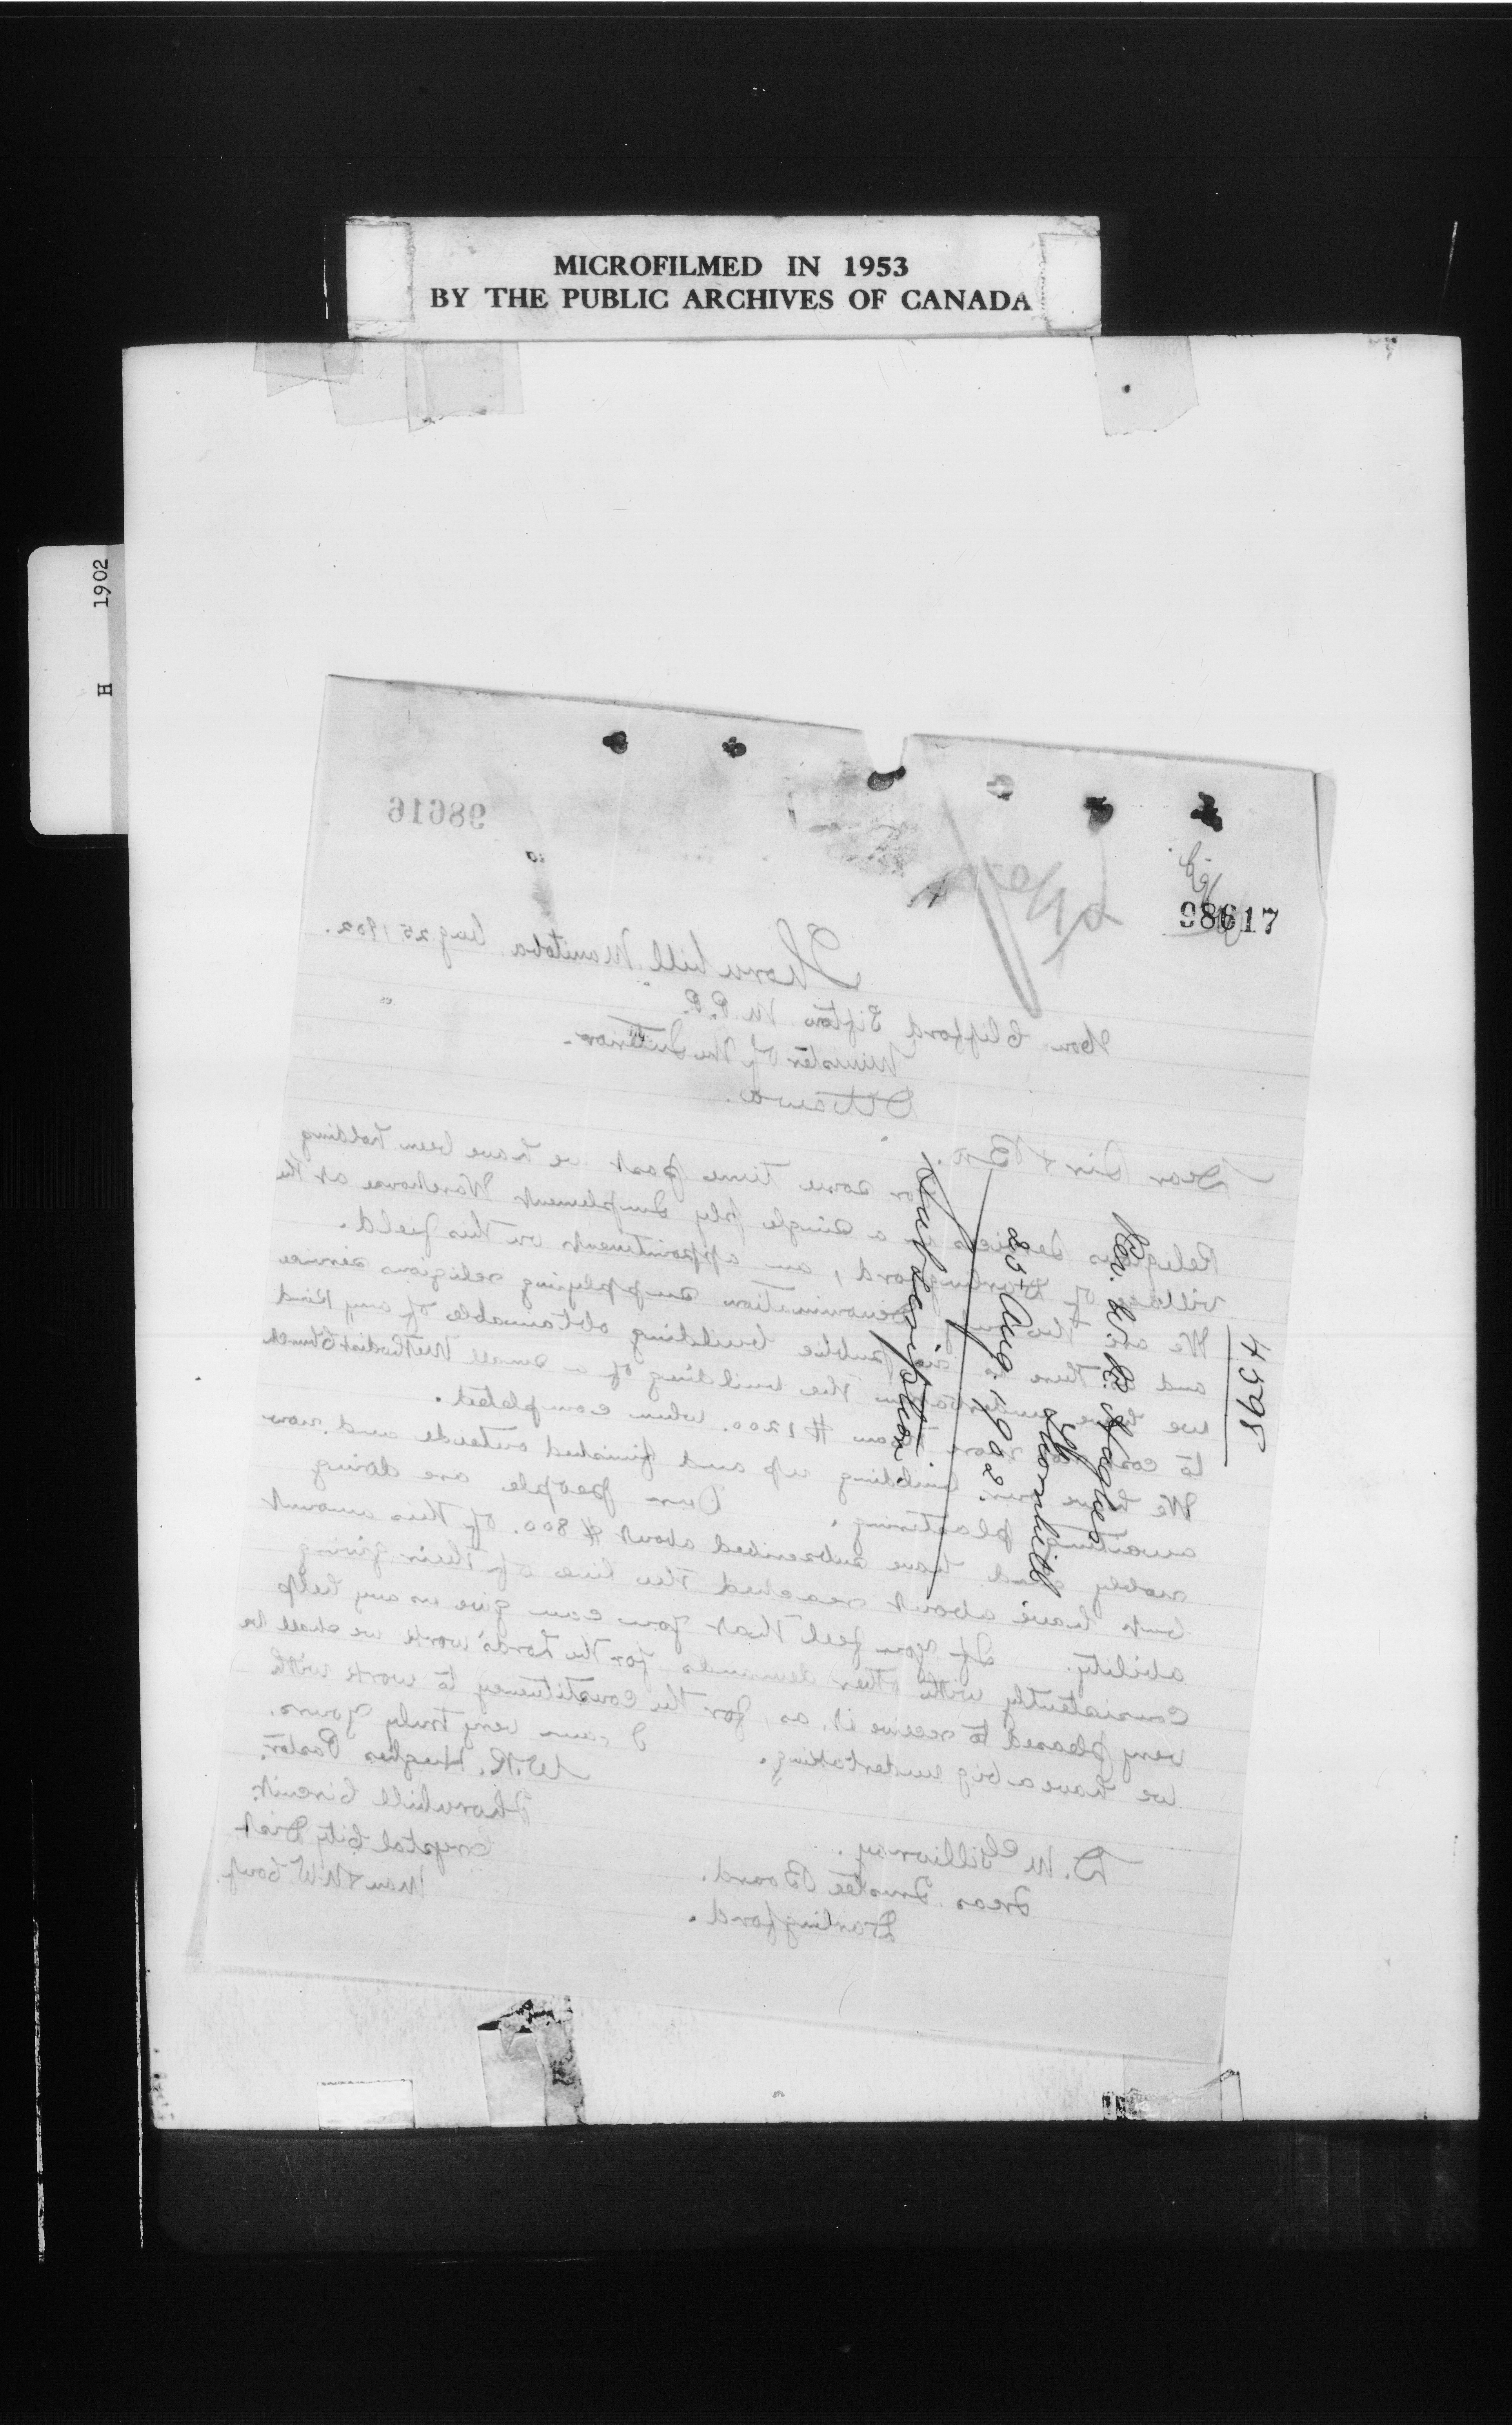 MICROFILMED IN 1953
BY THE PUBLIC ARCHIVES OF CANADA
H 1902
98616
98617
Thornhill Manitoba Aug 25 1902.
Hon Clifford Sifton M.P.P.
Minister of the Interior.
Ottawa.
Dear Sir & Bro.
For some time past we have been holding
Religious Services in a single ply Implement Warehouse at the
village of Darlingford, an appointment on this field.
We are the only Denomination supplying religious service
and as there is no public building obtainable of any kind
we have undertaken the building of a small Methodist Church
to cost us more than $1200. when completed.
We have our building up and finished outside and now
awaiting plastering. Our people are doing
nobly and have subscribed about $800. of this amount
but have about reached the line of their giving
ability. If you feel that you can give us any help
consistently with other demands for the Lords' work we shall be
very pleased to receive it, as, for the constituency to work with
we have a big undertaking. I am very truly yours.
W.R. Hughes Pastor.
Thornhill Circuit.
Crystal City Dist
Man & N.W. Conf.
D. McGillivray.
Treas Trustee Board.
Darlingford.
4595
Rev. W. R. Hughes
Thornhill
25 Aug. 1902.
Subscription